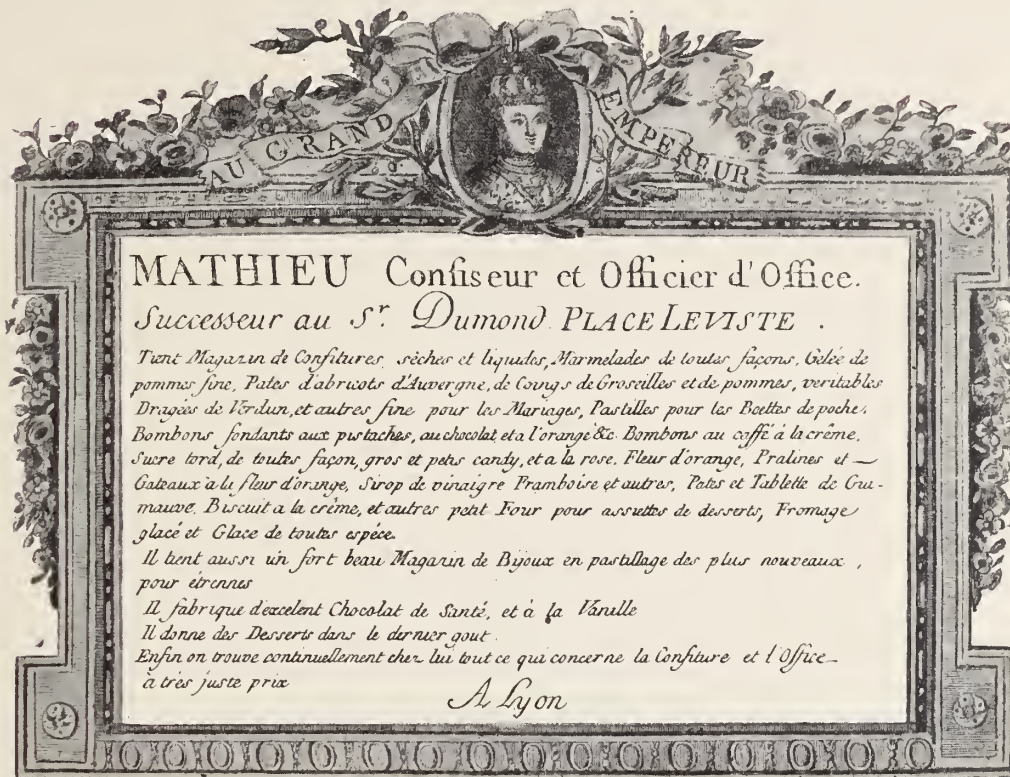 AU GRAND EMPEREUR
MATHIEU Confiseur et Officier d'Office.
Successeur au Sr. Dumond. PLACE LEVISTE .
Tient Magazin de Confitures sèches et liquides, Marmelades de toutes façons, Gélée de
pommes fine, Pates d'abricots d'Auvergne, de Coings de Groseilles et de pommes, veritables
Dragées de Verdun, et autres fine pour les Mariages, Pastilles pour les Boettes de poche,
Bombons fondants aux pistaches, au chocolat, et a l'orange &c. Bombons au caffé à la crême,
Sucre tord, de toutes façon, gros et petis candy, et a la rose. Fleur d'orange, Pralines et —
Gateaux a la fleur d'orange, Sirop de vinaigre Framboise et autres, Pates et Tablette de Gui-
mauve. Biscuit a la crême, et autres petit Four pour assiettes de desserts, Fromage
glacé et Glace de toutes espéce.
Il tient aussi un fort beau Magazin de Bijoux en pastillage des plus nouveaux,
pour étrennes
Il fabrique d'excelent Chocolat de Santé, et à la Vanille
Il donne des Desserts dans le dernier gout.
Enfin on trouve continuellement chez lui tout ce qui concerne la Confiture et l'Office
à très juste prix
A Lyon